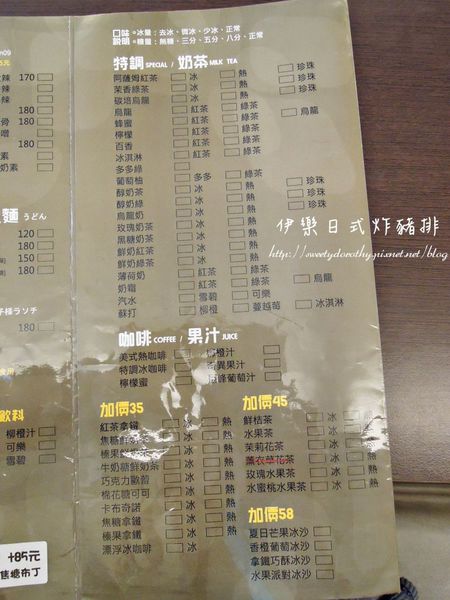 口味 ●冰量：去冰、微冰、少冰、正常
說明 ●糖量：無糖、三分、五分、八分、正常
特調 SPECIAL / 奶茶 MILK TEA
阿薩姆紅茶 冰 熱 珍珠
茉香綠茶 冰 熱 珍珠
碳培烏龍 冰 熱 珍珠
烏龍 紅茶 綠茶
蜂蜜 紅茶 綠茶 烏龍
檸檬 紅茶 綠茶
百香 紅茶 綠茶
冰淇淋 紅茶 綠茶
多多綠
葡萄柚 多多 綠茶
醇奶茶 冰 熱 珍珠
醇奶綠 冰 熱 珍珠
烏龍奶 冰 熱 珍珠
玫瑰奶茶 冰 熱
黑糖奶茶 冰 熱
鮮奶紅茶 冰 熱
鮮奶綠茶 冰 熱
薄荷奶 紅茶 綠茶
奶霜 紅茶 綠茶 烏龍
汽水 雪碧 可樂
蘇打 柳橙 蔓越莓 冰淇淋
咖啡 COFFEE / 果汁 JUICE
美式熱咖啡 柳橙汁
特調冰咖啡
檸檬蜜
加價35
紅茶拿鐵 冰 熱
焦糖鮮奶茶 冰 熱
榛果鮮奶茶 冰 熱
牛奶糖鮮奶茶 冰 熱
巧克力歐蕾 冰 熱
棉花糖可可 冰 熱
卡布奇諾 冰 熱
焦糖拿鐵 冰 熱
榛果拿鐵 冰 熱
漂浮冰咖啡 冰
加價45
鮮桔茶 冰 熱
水果茶 冰 熱
茉莉花茶 冰 熱
薰衣草花茶 冰 熱
玫瑰水果茶 冰 熱
水蜜桃水果茶 冰 熱
加價58
夏日芒果冰沙
香橙葡萄冰沙
拿鐵巧酥冰沙
水果派對冰沙
170
180
180
180
麵 うどん
120
180
150
180
180
飲料
柳橙汁
可樂
雪碧
+85元
焦糖布丁
伊樂日式炸豬排
http://sweetydorothy.pixnet.net/blog